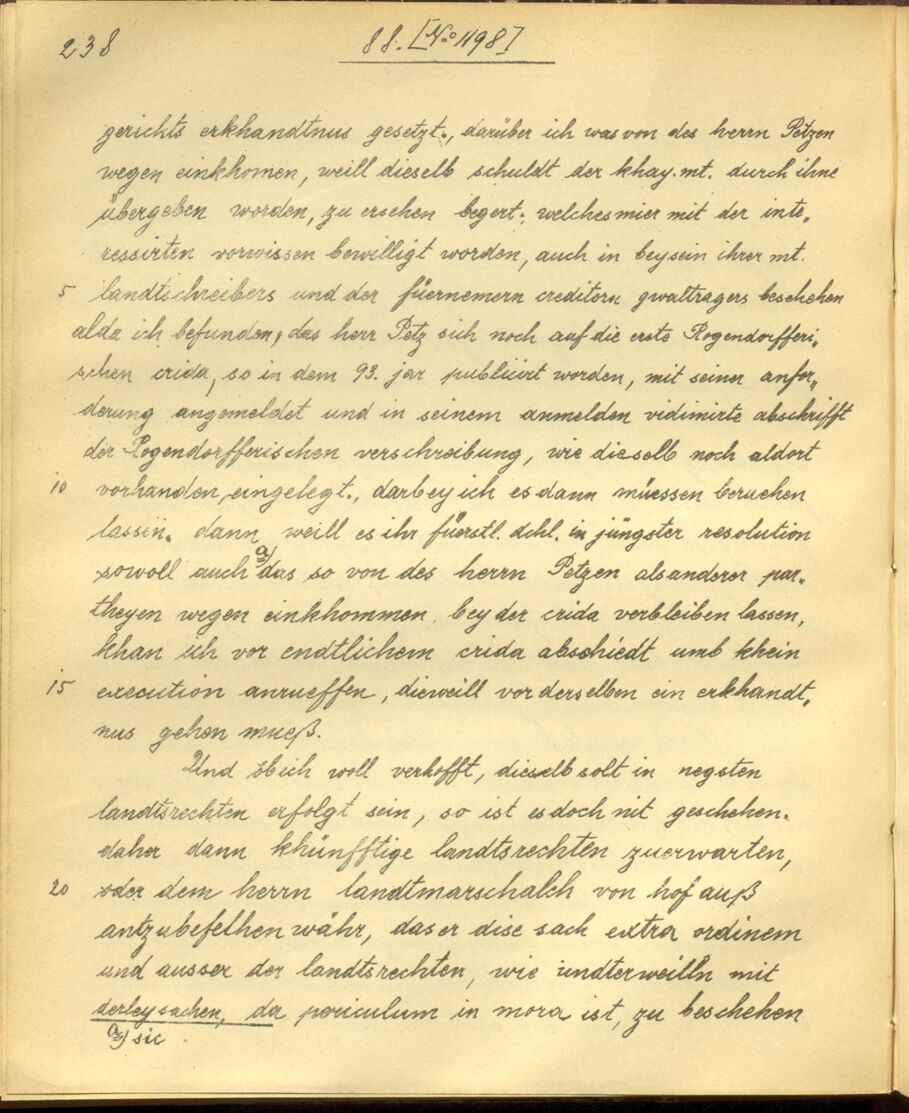 238
88. [No 1198]
gerichts erkhandtnus gesetzt., darüber ich was von des herrn Petzen
wegen einkhomen, weill dieselb schuldt der khay. mt. durch ihne
übergeben worden, zu ersehen begert; welches mier mit der inte„
ressirten vorwissen bewilligt worden, auch in beysein ihrer mt.
5 landtschreibers und der füernemern creditorn gwalttragers beschehen
alda ich befunden, das herr Petz sich noch auf die erste Rogendorfferi„
schen crida, so in dem 93. jar publiciirt worden, mit seiner anfor„
derung angemeldet und in seinem anmelden vidimirte abschrifft
der Rogendorfferischen verschreibung, wie dieselb noch aldort
10 vorhanden, eingelegt., darbey ich es dann müessen beruehen
lassen. dann weill es ihr fürstl. dchl. in jüngster resolution
sowoll auch a) das so von des herrn Petzen als anderer par„
theyen wegen einkhommen bey der crida verbleiben lassen,
khan ich vor endtlichem crida abschiedt umb khein
15 execution anrueffen, dieweill vor derselben ein erkhandt„
nus gehen mueß.
Und ob ich woll verhofft, dieselb solt in negsten
landtsrechten erfolgt sein, so ist es doch nit geschehen.
daher dann khünfftige landtsrechten zuerwarten,
20 oder dem herrn landtmarschalch von hof auß
antzubefelhen währ, das er dise sach extra ordinem
und ausser der landtsrechten, wie undterweilln mit
derley sachen, da periculum in mora ist, zu beschehen
a) sic